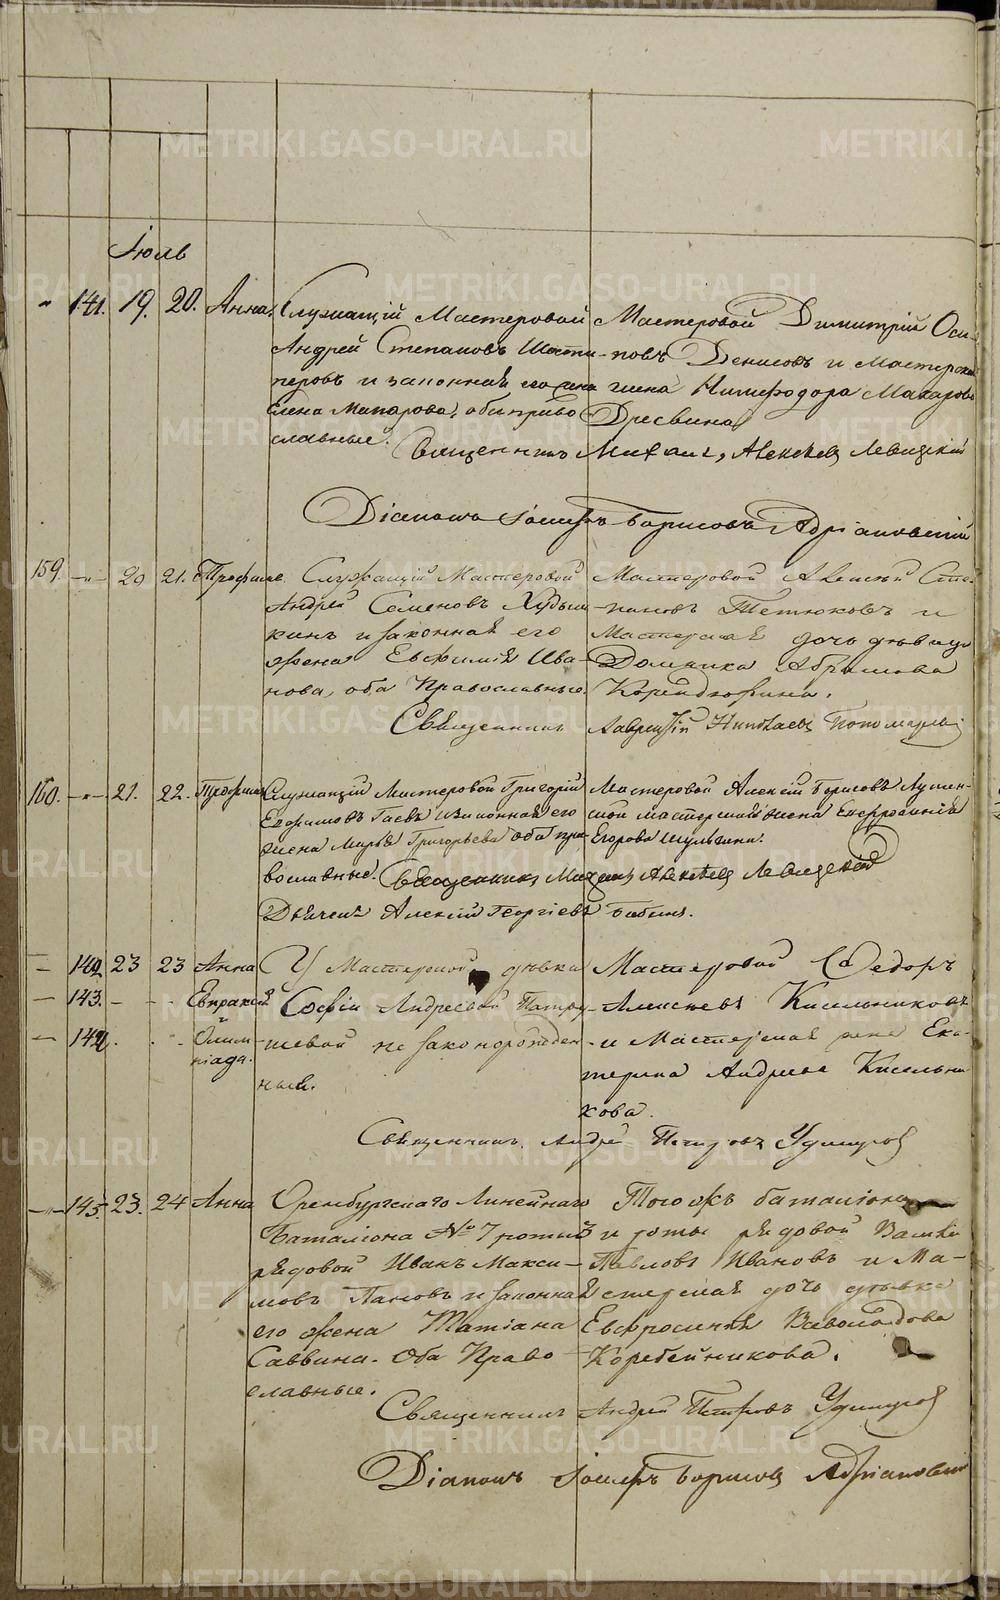 METRIKI.GASO-URAL.RU
Іюль
141. 19. 20. Анна.
Служащій Мастеровой
Андрей Степановъ Шести-
перовъ и законная его жена
Елена Макарова, оба право-
славные.
Мастеровой Димитрій Оси-
повъ Денисовъ и Мастерская
жена Нимфодора Макарова
Дресвина
Священникъ Михаилъ Алексѣевъ Левицкій
Діаконъ Іосифъ Борисовъ Адріановскій
159. -"- 20 21. Трофимъ.
Служащій Мастеровой
Андрей Семеновъ
кинъ и законная его
жена Евфимія Ива-
нова, оба Православные.
Мастеровой Алексѣй Сте-
пановъ Тетюковъ и
Мастерская дочь дѣвица
Домника Абрамова
Священникъ Лаврентій Николаевъ Пономаревъ
160. -"- 21. 22. Трофимъ
Служащій Мастеровой Григорій
Евфимовъ Гаевъ и законная его
жена Марья Григорьева оба пра-
вославные.
Мастеровой Алексѣй Борисовъ
мастерская жена Евфросинія
Егорова Шульгина.
Священникъ Михаилъ Алексѣевъ Левицкій
Дьячекъ Алексѣй Георгіевъ Бабинъ.
142 23 23 Анна
143. - - Евпраксія
144. Олим-
піада.
У Мастерской дѣвки
Софіи Андреевой
шевой незаконорожден-
ныя.
Мастеровой Ѳедоръ
Алексѣевъ Кисельниковъ
и Мастерская жена Ека-
терина Андреева Кисельни-
кова.
Священникъ Андрей Петровъ Удинцовъ
-"- 145. 23. 24 Анна
Оренбургскаго Линейнаго
Баталіона № 7 ротный
рядовой Иванъ Макси-
мовъ Пановъ и законная
его жена Татіана
Саввина. Оба Право-
славные.
Того жъ баталіона
и роты рядовой Василій
Павловъ Ивановъ и Ма-
стерская дочь дѣвка
Евфросинія Всеволодова
Коробейникова.
Священникъ Андрей Петровъ Удинцовъ
Діаконъ Іосифъ Борисовъ Адріановскій